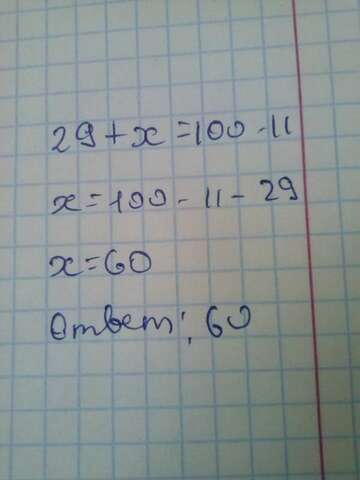 29+x=100-11
x=100-11-29
x=60
Ответ: 60